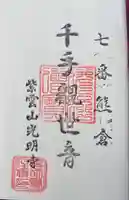 七番熊倉
千手観世音
紫雲山光明寺